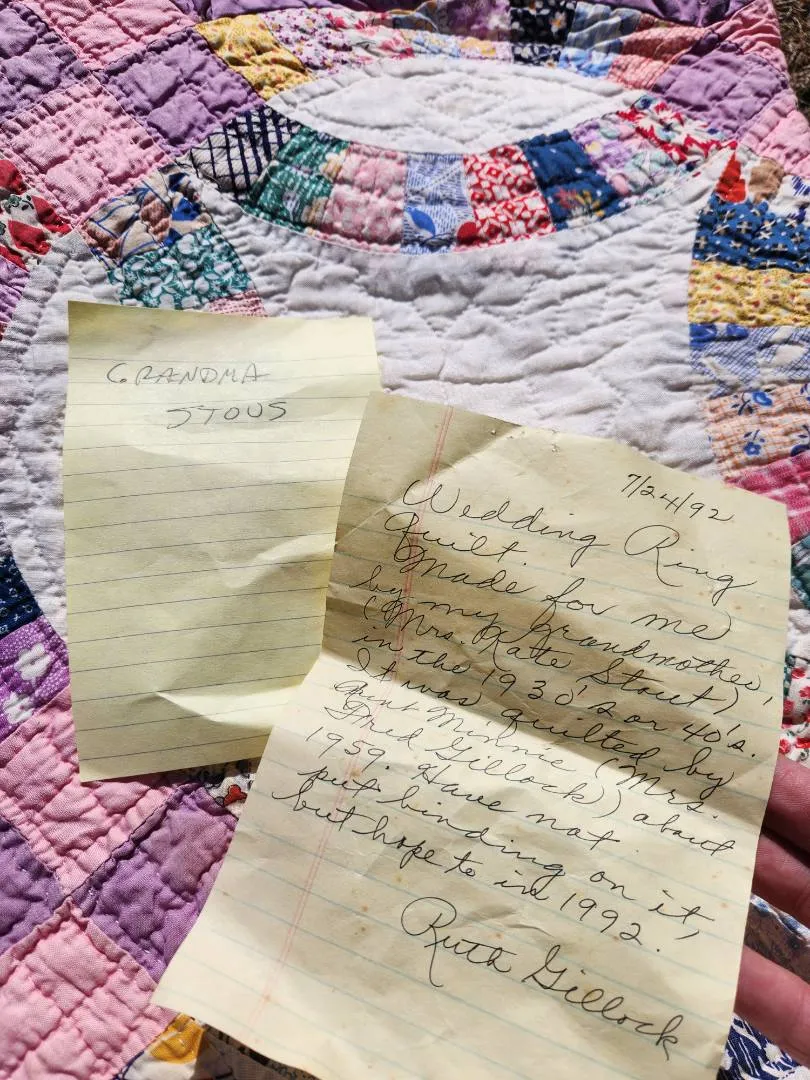 GRANDMA
STOUS
7/24/92
Wedding Ring
Quilt.
Made for me
by my Grandmother,
(Mrs. Kate Stout)
in the 1930's or 40's.
It was quilted by
Aunt Minnie (Mrs.
Fred Gillock)) about
1959. Have not
put binding on it,
but hope to in 1992.
Ruth Gillock